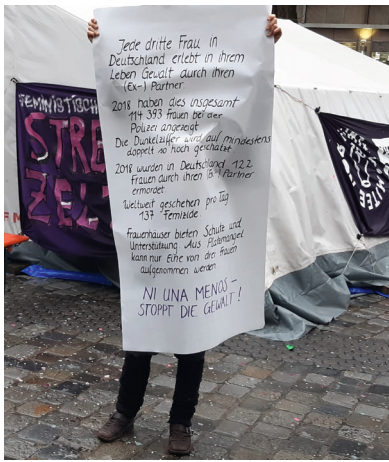 Jede dritte Frau in
Deutschland erlebt in ihrem
Leben Gewalt durch ihren
(Ex-) Partner
2018 haben dies insgesamt
114 393 Frauen bei der
Polizei angezeigt
Die Dunkelziffer wird auf mindestens
doppelt so hoch geschätzt
2018 wurden in Deutschland 122
Frauen durch ihren (Ex-) Partner
ermordet
Weltweit geschehen pro Tag
137 Femizide
Frauenhäuser bieten Schutz und
Unterstützung. Aus Platzmangel
kann nur Eine von drei Frauen
aufgenommen werden
NI UNA MENOS -
STOPPT DIE GEWALT!
FEMINISTISCH
STRE
ZEL